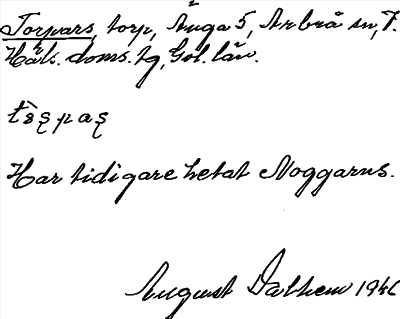 Torpars, torp, Änga 5, Arbrå sn, 7.
Häls. doms. tg, Göl. län.
tɛ̀ʂpaʂ
Har tidigare hetat Noggarns.
August Dalhem 1946